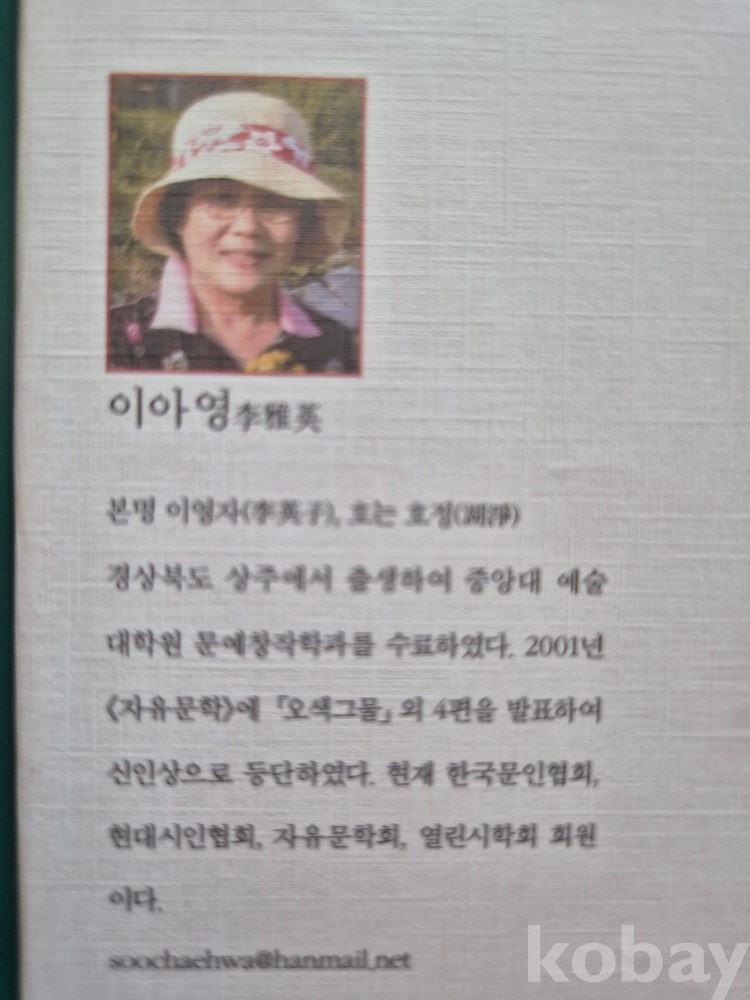 이아영李雅英
본명 이영자(李英子), 호는 호정(湖淨)
경상북도 상주에서 출생하여 중앙대 예술
대학원 문예창작학과를 수료하였다. 2001년
《자유문학》에 「오색그물」외 4편을 발표하여
신인상으로 등단하였다. 현재 한국문인협회,
현대시인협회, 자유문학회, 열린시학회 회원
이다.
soochaehwa@hanmail.net
kobay